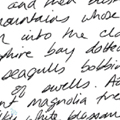 and
mountains whose
into the cla
shire bay dotted
seagulls bobbin
of swells. A
nt magnolia tre
white blossom